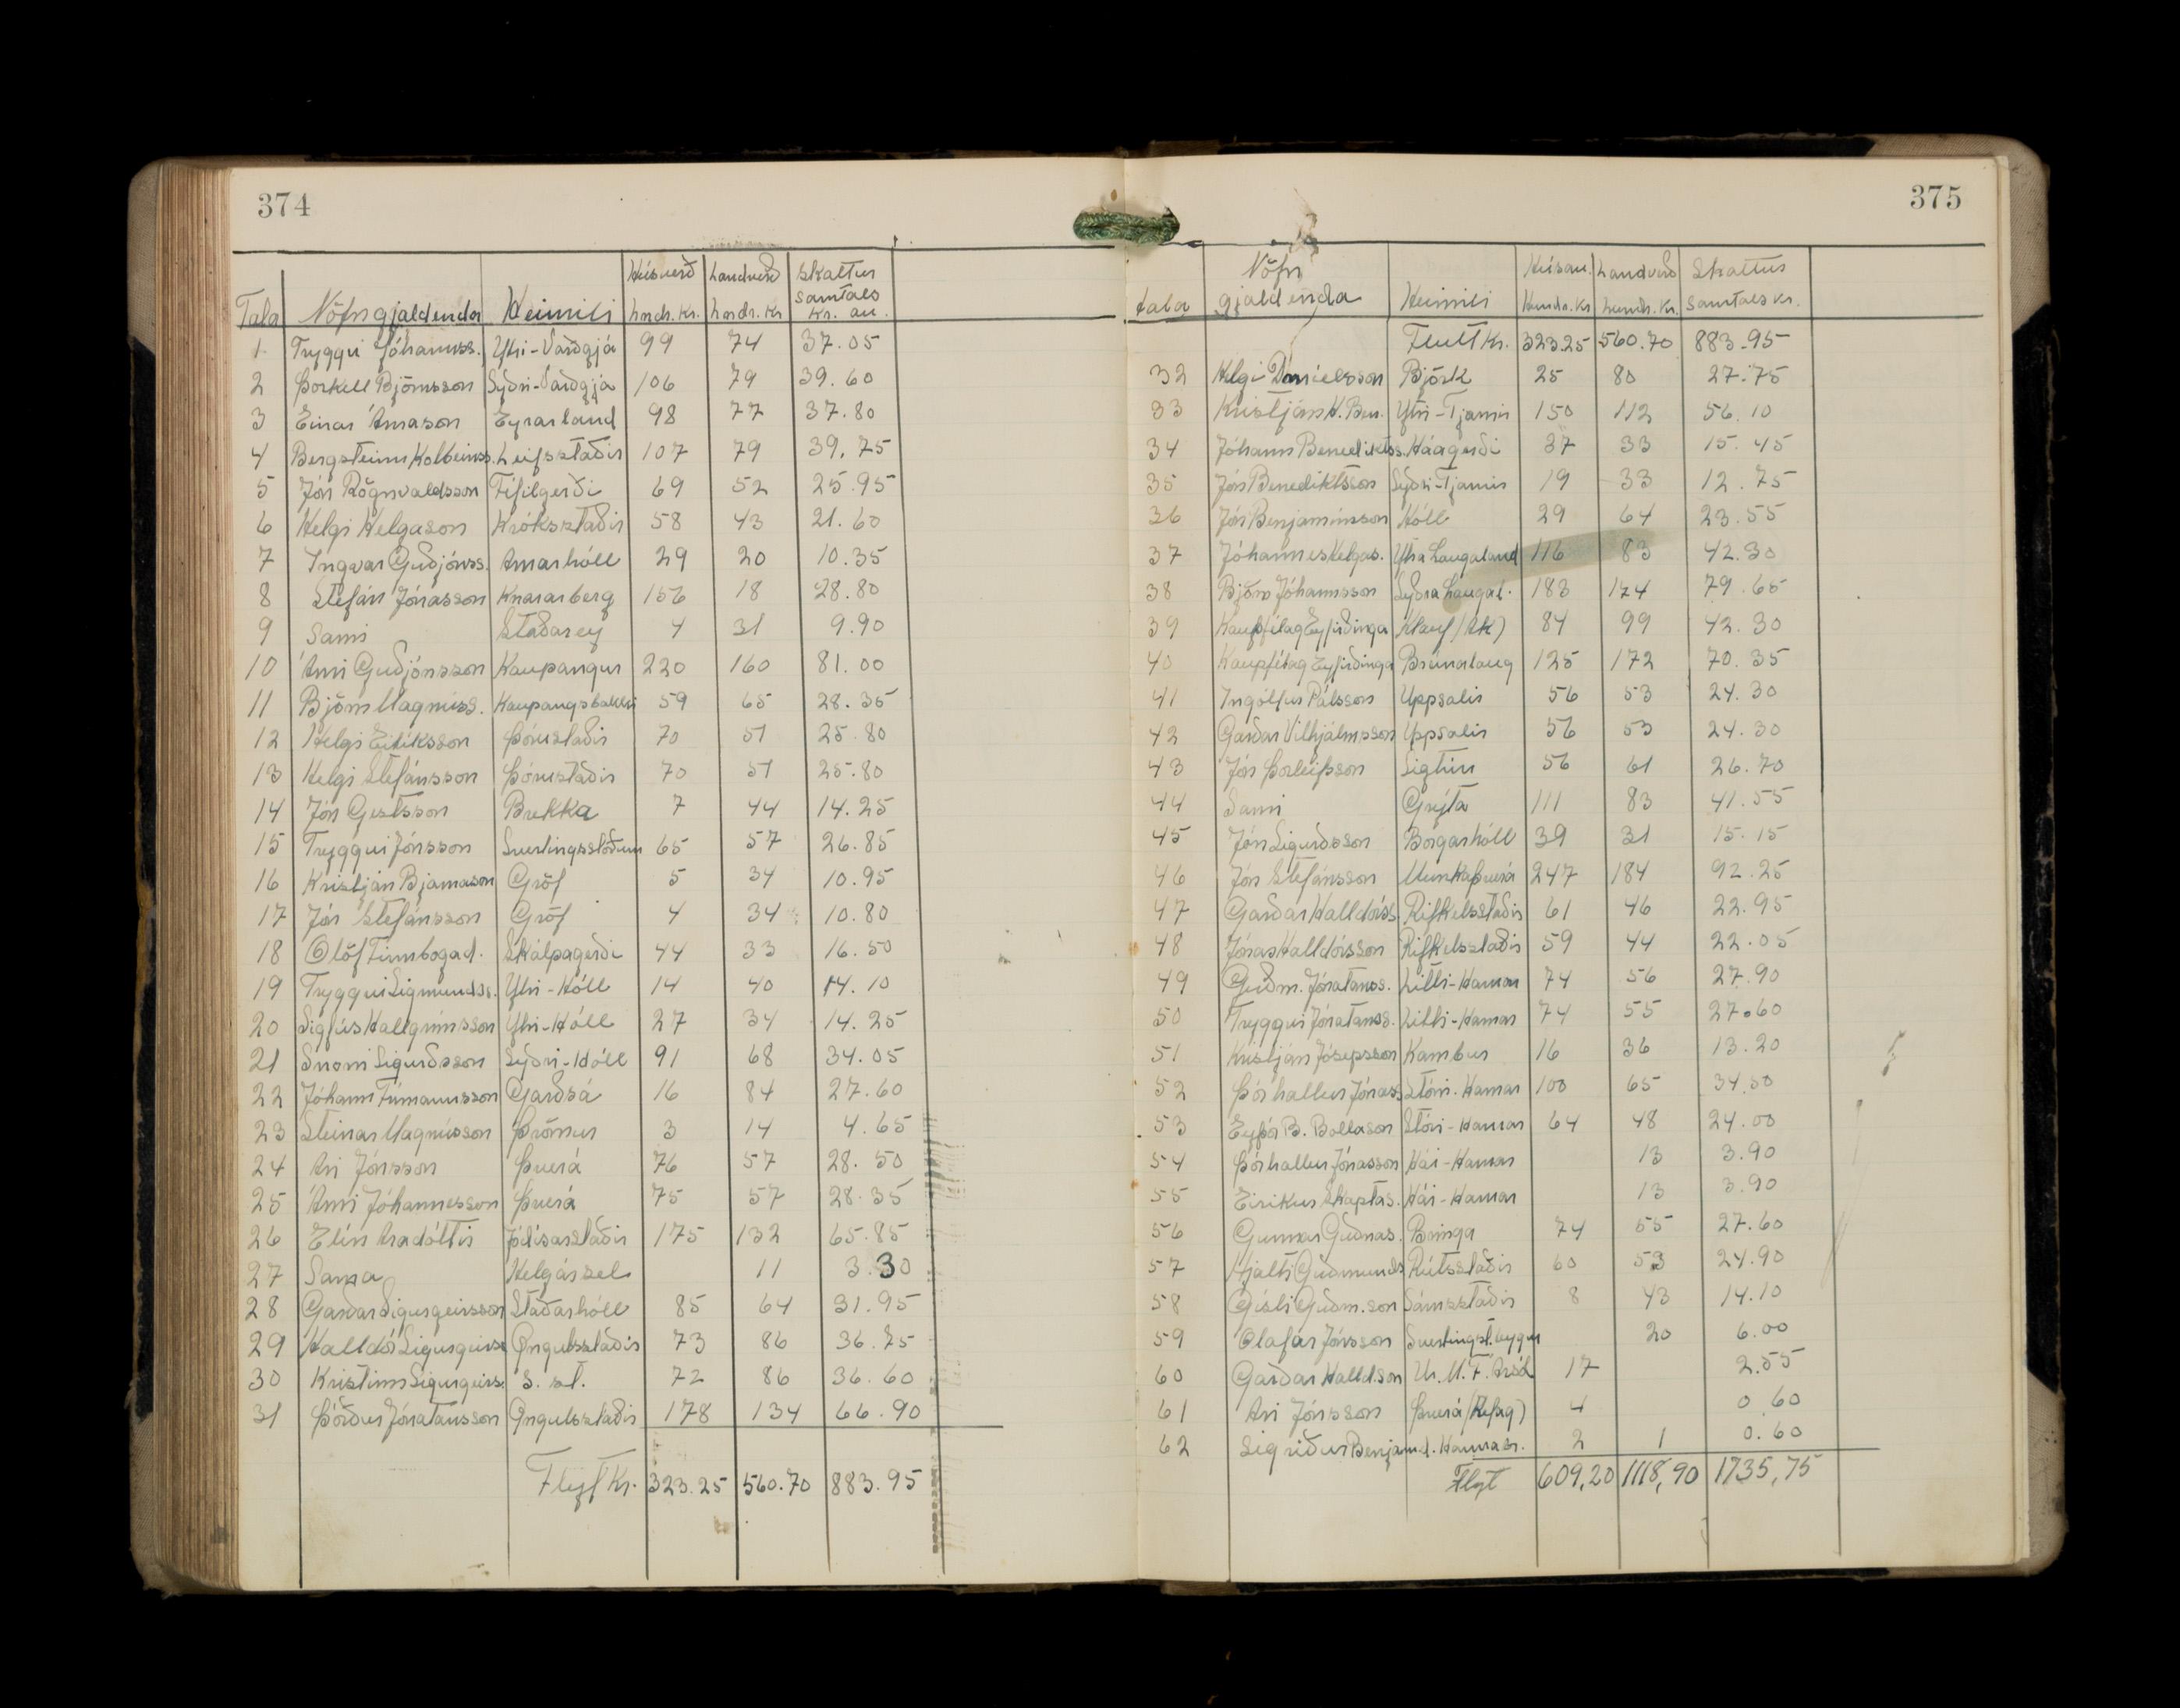 374
Tala Nöfn gjaldenda Heimili Húsverð hndr. kr. Landverð hndr. kr. Skattur samtals kr. au.
1 Tryggvi Jóhannss. Ytri-Varðgjá 99 74 37.05
2 Þorkell Björnsson Syðri-Varðgjá 106 79 39.60
3 Einar Árnason Eyrarland 98 77 37.80
4 Bergsteinn Kolbeinss. Leifsstaðir 107 79 39.75
5 Jón Rögnvaldsson Fífilgerði 69 52 25.95
6 Helgi Helgason Króksstaðir 58 43 21.60
7 Ingvar Guðjónss. Arnarhóll 29 20 10.35
8 Stefán Jónasson Knararberg 156 18 28.80
9 Sami Staðarey 4 31 9.90
10 Árni Guðjónsson Kaupangur 220 160 81.00
11 Björn Magnúss. Kaupangsbakki 59 65 28.35
12 Helgi Eiríksson Þórustaðir 70 51 25.80
13 Helgi Stefánsson Þórustaðir 70 51 25.80
14 Jón Gestsson Brekka 7 44 14.25
15 Tryggvi Jónsson Svertingsstöðum 65 57 26.85
16 Kristján Bjarnason Gröf 5 34 10.95
17 Jón Stefánsson Gröf 4 34 10.80
18 Ólöf Finnbogad. Skálpagerði 44 33 16.50
19 Tryggvi Sigmundss. Ytri-Hóll 14 40 14.10
20 Sigfús Hallgrímsson Ytri-Hóll 27 34 14.25
21 Snorri Sigurðsson Syðri-Hóll 91 68 34.05
22 Jóhann Frímannsson Garðsá 16 84 27.60
23 Steinar Magnússon Þrömur 3 14 4.65
24 Ari Jónsson Þverá 76 57 28.50
25 Árni Jóhannesson Þverá 75 57 28.35
26 Elín Aradóttir Jódísarstaðir 175 132 65.85
27 Sama Helgársel 11 3.30
28 Garðar Sigurgeirsson Staðarhóll 85 64 31.95
29 Halldór Sigurgeirss. Öngulsstaðir 73 86 36.75
30 Kristinn Sigurgeirs. S. st. 72 86 36.60
31 Þórður Jónatansson Öngulsstaðir 178 134 66.90
Flyt Kr. 323.25 560.70 883.95
375
tala Nöfn gjaldenda Heimili Húsav. Hundr. Kr Landverð hundr. Kr. Skattur samtals kr.
Flutt Kr. 323.25 560.70 883.95
32 Helgi Daníelsson Björk 25 80 27.75
33 Kristján H. Ben. Ytri-Tjarnir 150 112 56.10
34 Jóhann Benediktss. Háagerði 37 33 15.45
35 Jón Benediktsson Syðri-Tjarnir 19 33 12.75
36 Jón Benjamínsson Hóll 29 64 23.55
37 Jóhannes Helgas. Ytra Laugaland 116 83 42.30
38 Björn Jóhannsson Syðra Laugal. 183 174 79.65
39 Kaupfélag Eyfirðinga Klauf (Ak) 84 99 42.30
40 Kaupfélag Eyfirðinga Brúnalaug 125 172 70.35
41 Ingólfur Pálsson Uppsalir 56 53 24.30
42 Garðar Vilhjálmsson Uppsalir 56 53 24.30
43 Jón Þorleifsson Sigtún 56 61 26.70
44 Sami Grýta 111 83 41.55
45 Jón Sigurðsson Borgarhóll 39 31 15.15
46 Jón Stefánsson Munkaþverá 247 184 92.25
47 Garðar Halldórss. Rifkelsstaðir 61 46 22.95
48 Jónas Halldórsson Rifkelsstaðir 59 44 22.05
49 Guðm. Jónatanss. Litli-Hamar 74 56 27.90
50 Tryggvi Jónatanss. Litli-Hamar 74 55 27.60
51 Kristján Jósepsson Kambur 16 36 13.20
52 Þórhallur Jónass. Stóri-Hamar 100 65 34.50
53 Eyþór B. Bollason Stóri-Hamar 64 48 24.00
54 Þórhallur Jónasson Hái-Hamar 13 3.90
55 Eiríkur Skaptas. Hái-Hamar 13 3.90
56 Gunnar Guðnas. Bringa 74 55 27.60
57 Hjalti Guðmunds Rútsstaðir 60 53 24.90
58 Gísli Guðm.son Sámsstaðir 8 43 14.10
59 Ólafar Jónsson 20 6.00
60 Garðar Halld.son U.M.F. Ársól 17 2.55
61 Ari Jónsson Þverá (Refag) 4 0.60
62 Sigríður Benjamd. 2 1 0.60
Flyt 609,20 1118,90 1735,75